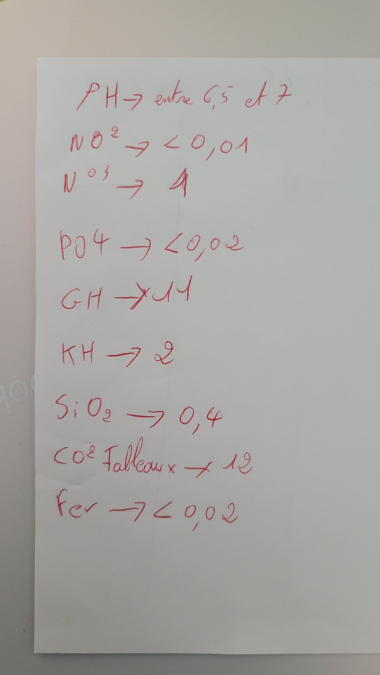 PH → entre 6,5 et 7
NO² → < 0,01
N⁰³ → 1
PO4 → < 0,02
GH → 11
KH → 2
SiO₂ → 0,4
CO² Tableaux → 12
Fer → < 0,02